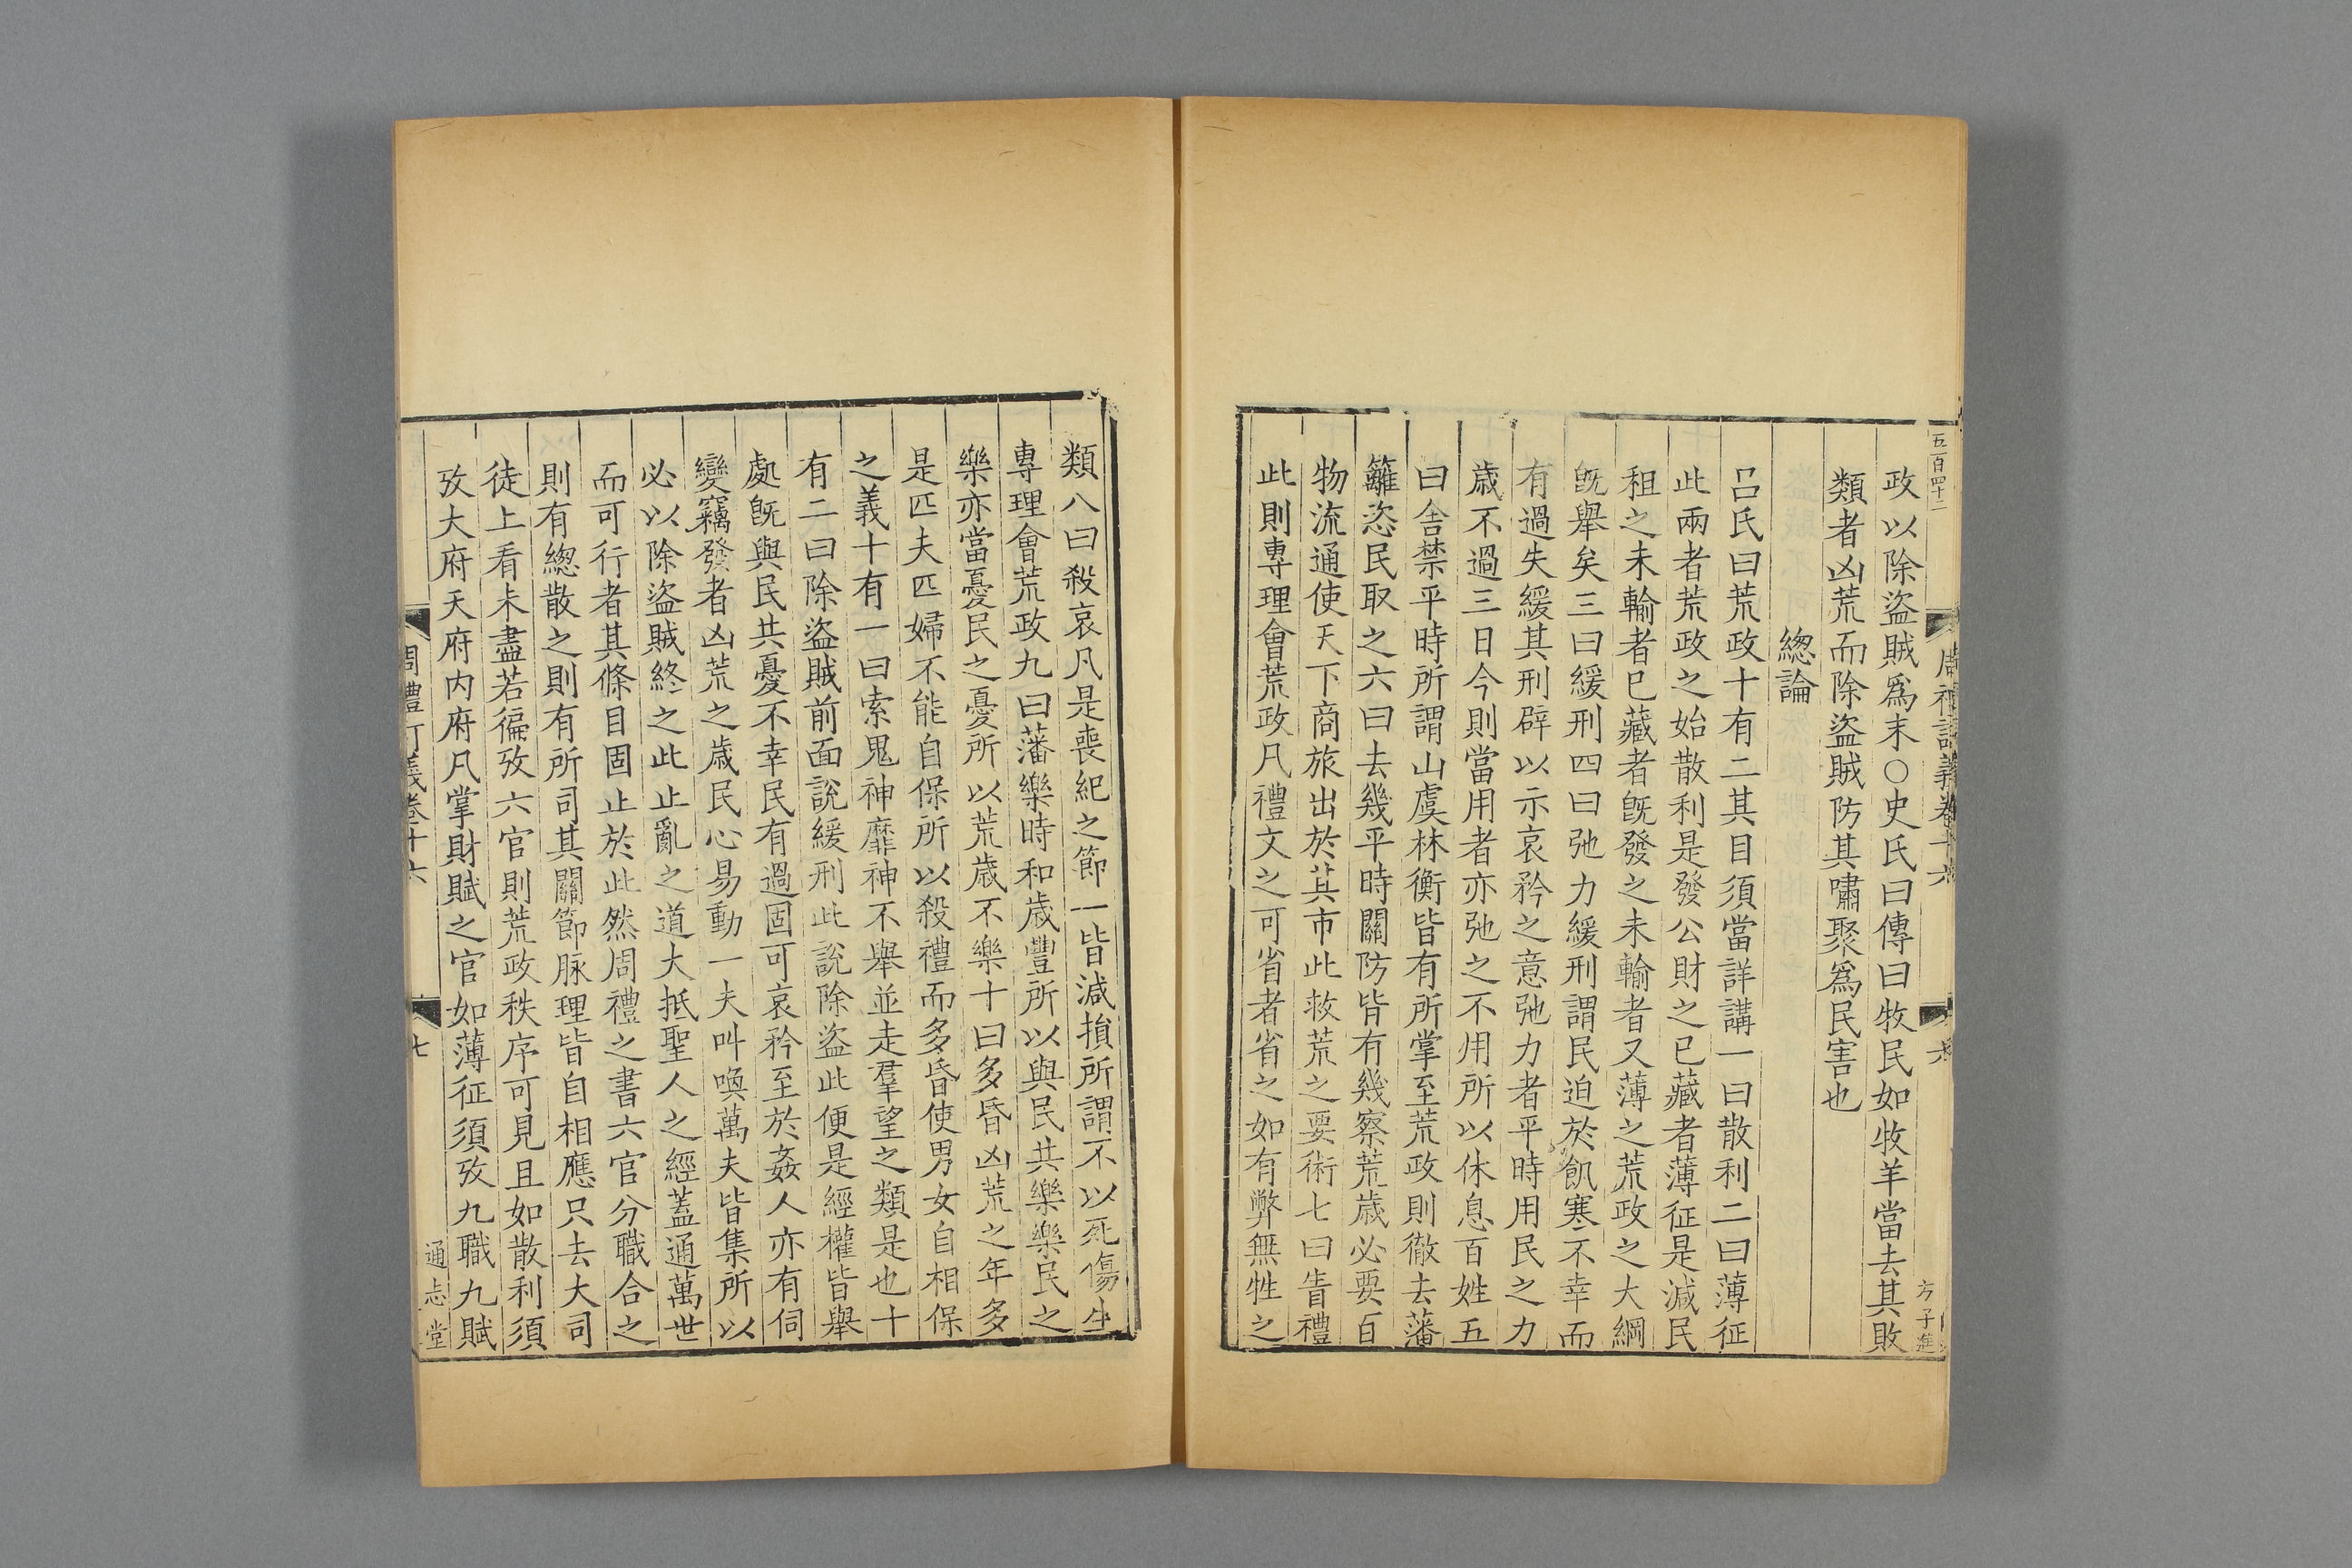 五百四十二
周禮訂義卷十六
六
方子進
政以除盜賊爲末○史氏曰傳曰牧民如牧羊當去其敗
類者凶荒而除盜賊防其嘯聚爲民害也
總論
呂氏曰荒政十有二其目須當詳講一曰散利二曰薄征
此兩者荒政之始散利是發公財之已藏者薄征是減民
租之未輸者已藏者旣發之未輸者又薄之荒政之大綱
旣舉矣三曰緩刑四曰弛力緩刑謂民迫於飢寒不幸而
有過失緩其刑辟以示哀矜之意弛力者平時用民之力
歲不過三日今則當用者亦弛之不用所以休息百姓五
曰舍禁平時所謂山虞林衡皆有所掌至荒政則徹去藩
籬恣民取之六曰去幾平時關防皆有幾察荒歲必要百
物流通使天下商旅出於其市此救荒之要術七曰眚禮
此則專理會荒政凡禮文之可省者省之如有弊無牲之
類八曰殺哀凡是喪紀之節一皆減損所謂不以死傷生
專理會荒政九曰藩樂時和歲豐所以與民共樂樂民之
樂亦當憂民之憂所以荒歲不樂十曰多昏凶荒之年多
是匹夫匹婦不能自保所以殺禮而多昏使男女自相保
之義十有一曰索鬼神靡神不舉並走羣望之類是也十
有二曰除盜賊前面說緩刑此說除盜此便是經權皆舉
處旣與民共憂不幸民有過固可哀矜至於姦人亦有伺
變竊發者凶荒之歲民心易動一夫叫喚萬夫皆集所以
必以除盜賊終之此止亂之道大抵聖人之經蓋通萬世
而可行者其條目固止於此然周禮之書六官分職合之
則有總散之則有所司其關節脉理皆自相應只去大司
徒上看未盡若徧攷六官則荒政秩序可見且如散利須
攷大府天府内府凡掌財賦之官如薄征須攷九職九賦
周禮訂義卷十六
七
通志堂